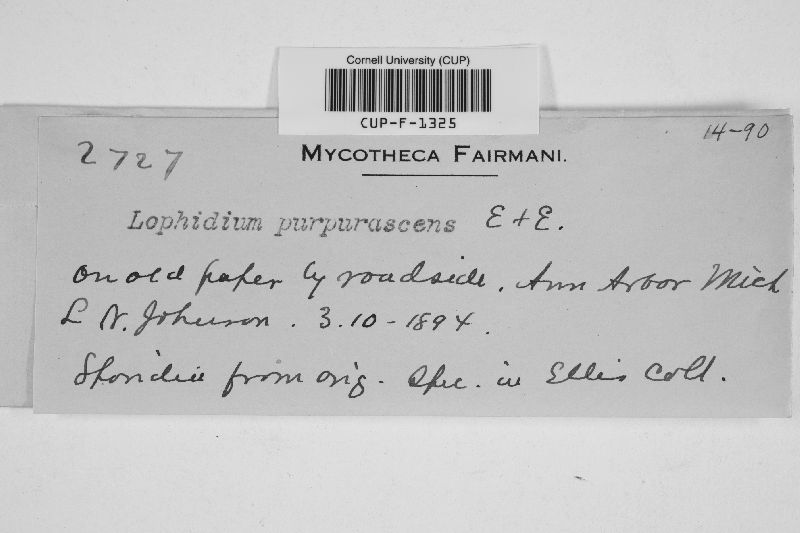 Cornell University (CUP)
CUP-F-1325
14-90
2727
MYCOTHECA FAIRMANI.
Lophidium purpurascens E + E.
on old paper by roadside, Ann Arbor Mich
L N. Johnson. 3.10-1894.
Sporidia from orig. Spec. in Ellis Coll.